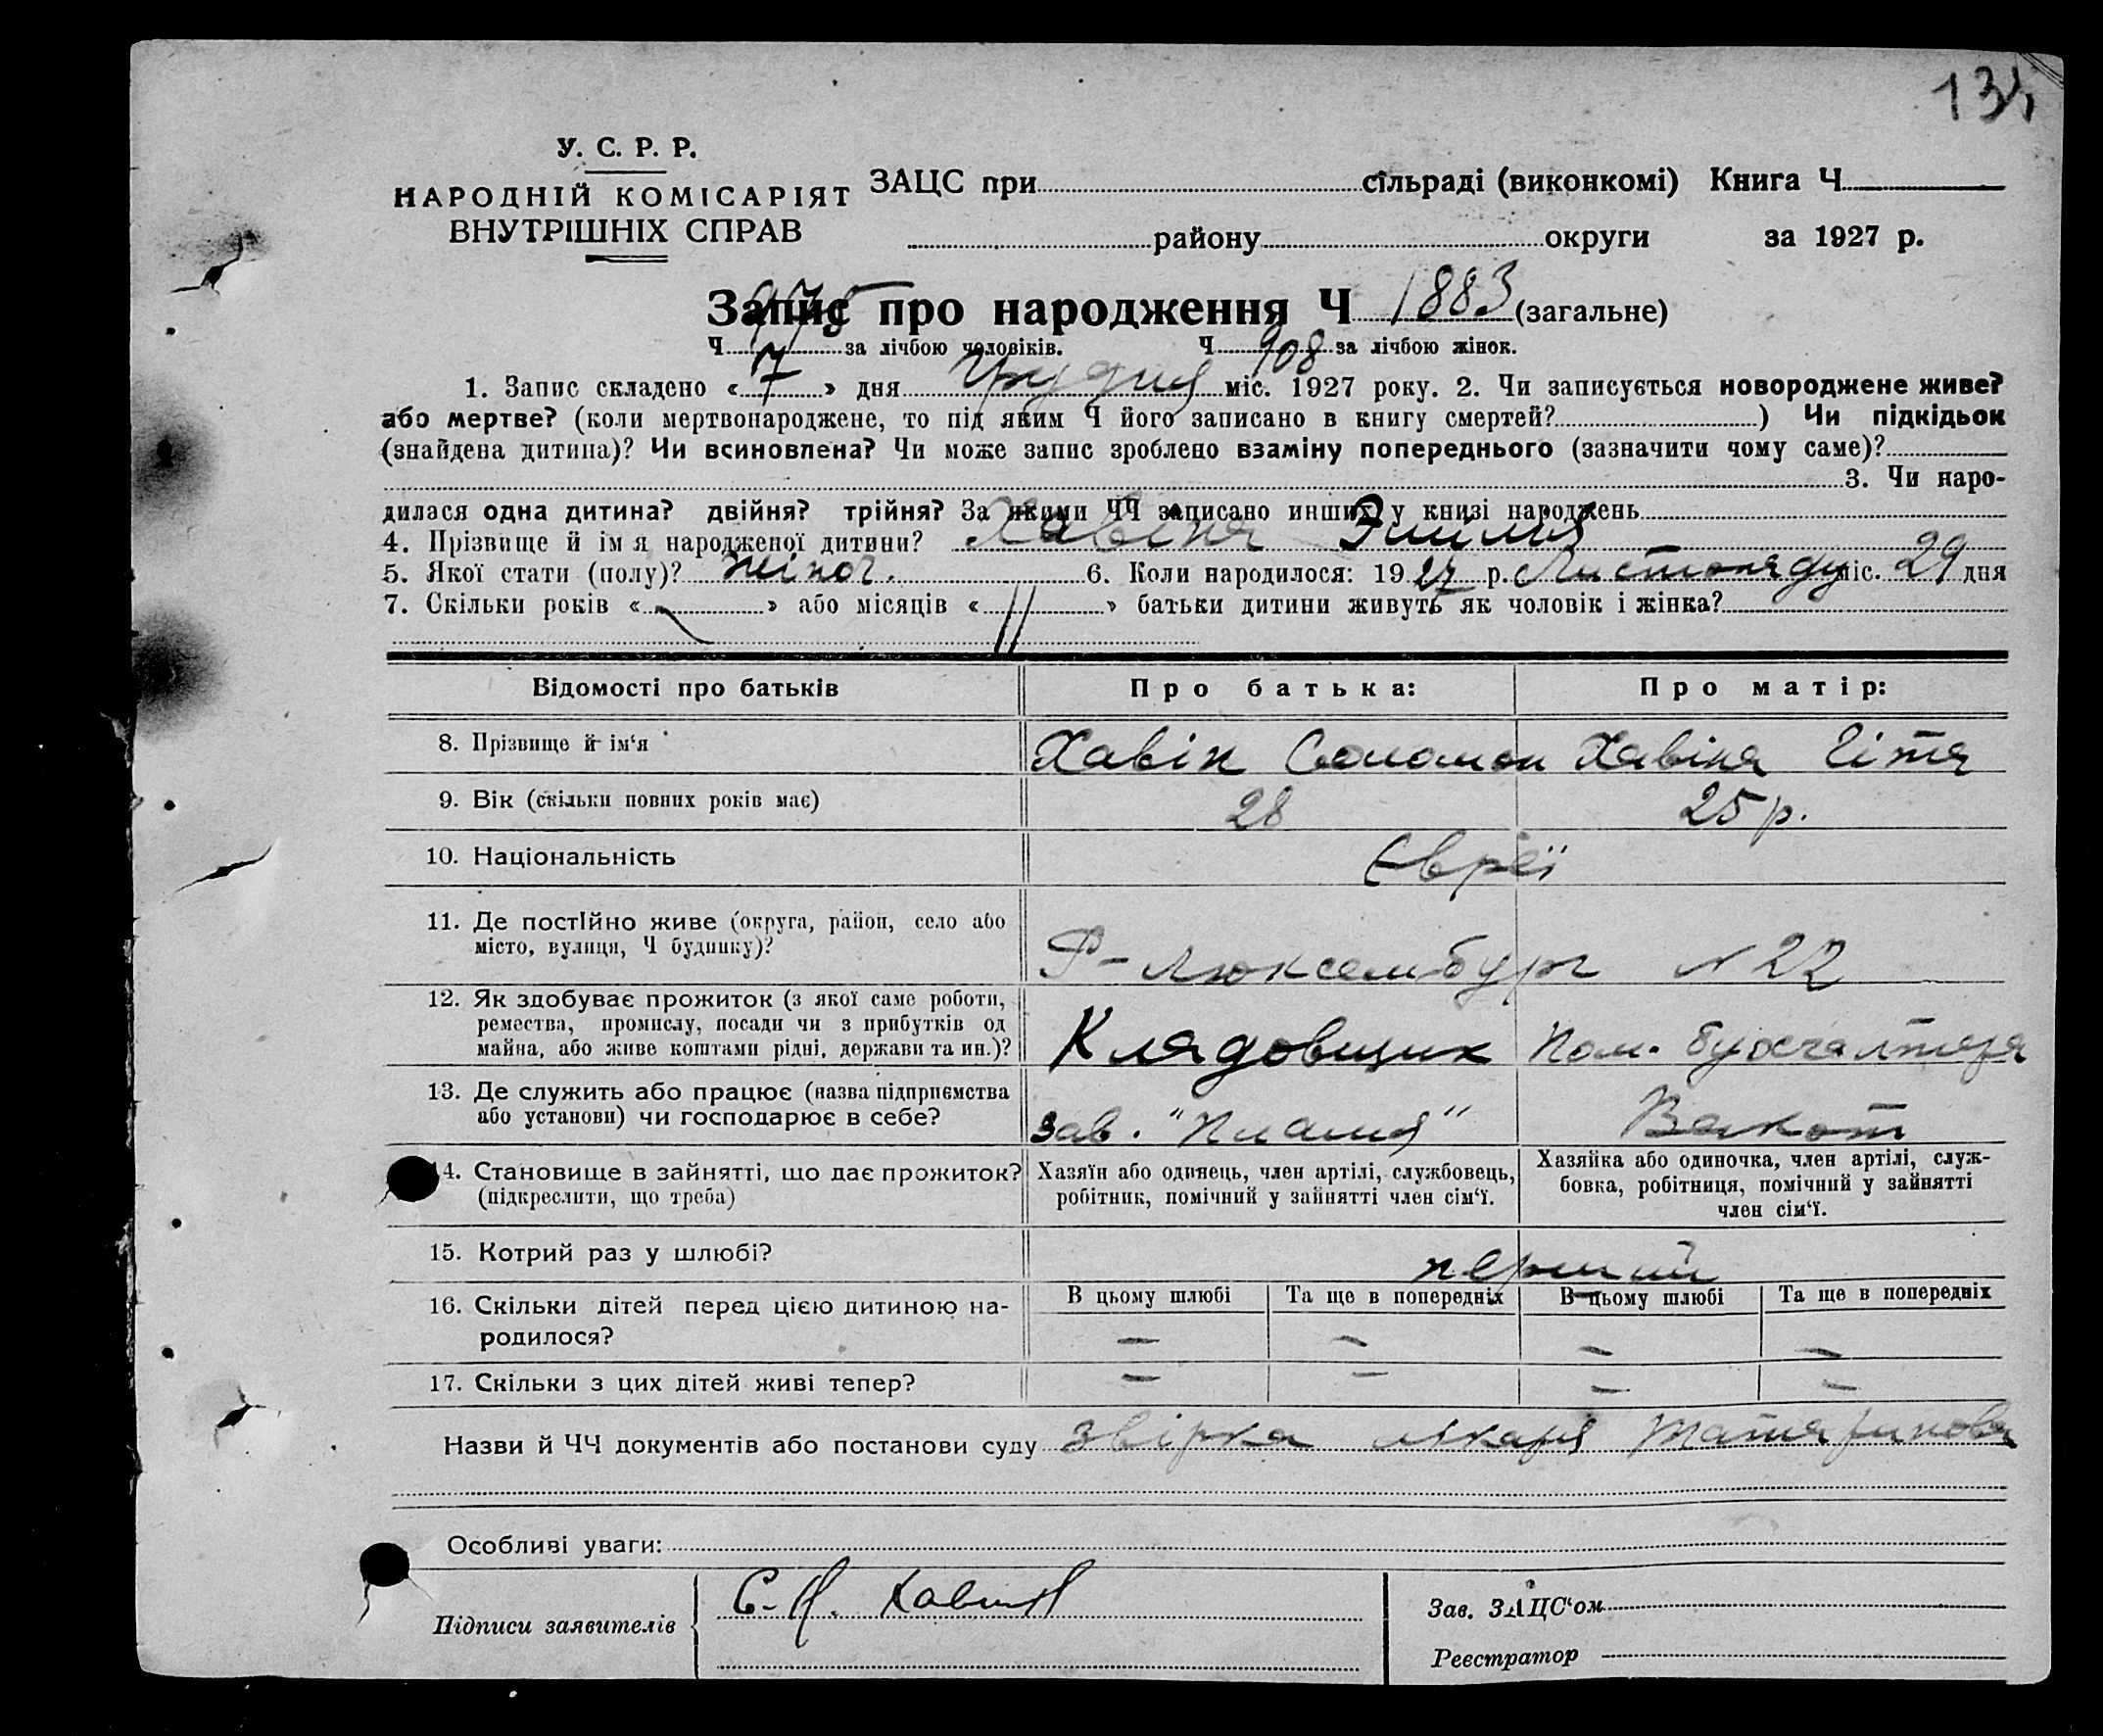 У. С. Р. Р.
НАРОДНІЙ КОМІСАРІЯТ
ВНУТРІШНІХ СПРАВ
ЗАЦС при сільраді (виконкомі) Книга Ч
району округи за 1927 р.
Запис про народження Ч 1883 (загальне)
Ч 975 за лічбою чоловіків. Ч 908 за лічбою жінок.
1. Запис складено « 7 » дня грудня міс. 1927 року. 2. Чи записується новороджене живе?
або мертве? (коли мертвонароджене, то під яким Ч його записано в книгу смертей? ) Чи підкідьок
(знайдена дитина)? Чи всиновлена? Чи може запис зроблено взаміну попереднього (зазначити чому саме)?
3. Чи наро-
дилася одна дитина? двійня? трійня? За якими ЧЧ записано инших у книзі народжень
4. Прізвище й ім я народженої дитини? Хавіна Эмілія
5. Якої стати (полу)? жіноч. 6. Коли народилося: 19 27 р. Листопаду міс. 29 дня
7. Скільки років « » або місяців « » батьки дитини живуть як чоловік і жінка?
Відомості про батьків Про батька: Про матір:
8. Прізвище й ім‘я Хавін Соломон Хавіна Гітя
9. Вік (скільки повних років має) 28 25 р.
10. Національність Євреї
11. Де постійно живе (округа, район, село або
місто, вулиця, Ч будинку)? Р-Люксембург № 22
12. Як здобуває прожиток (з якої саме роботи,
ремества, промислу, посади чи з прибутків од
майна, або живе коштами рідні, держави та ин.)? Клядовщик Пом. бухгалтера
13. Де служить або працює (назва підприємства
або установи) чи господарює в себе? зав. "Пламя" Вакот
14. Становище в зайнятті, що дає прожиток?
(підкреслити, що треба)
Хазяїн або одинець, член артілі, службовець,
робітник, помічний у зайнятті член сім‘ї.
Хазяйка або одиночка, член артілі, служ-
бовка, робітниця, помічний у зайнятті
член сім‘ї.
15. Котрий раз у шлюбі? перший
16. Скільки дітей перед цією дитиною на-
родилося?
В цьому шлюбі Та ще в попередніх В цьому шлюбі Та ще в попередніх
— — — —
17. Скільки з цих дітей живі тепер? — — — —
Назви й ЧЧ документів або постанови суду звірка лікаря Татаринова
Особливі уваги:
Підписи заявителів С. Хавин
Зав. ЗАЦС‘ом
Реєстратор